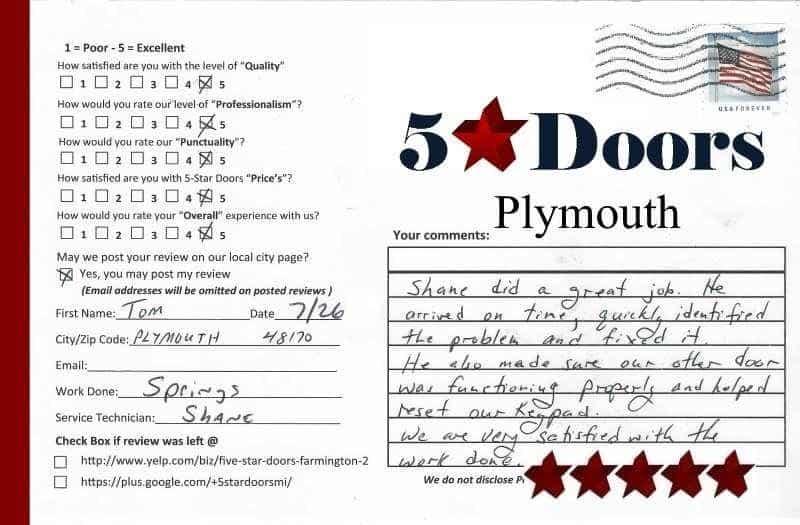 1 = Poor - 5 = Excellent
How satisfied are you with the level of "Quality"
1 2 3 4 5
How would you rate our level of "Professionalism"?
1 2 3 4 5
How would you rate our "Punctuality"?
1 2 3 4 5
How satisfied are you with 5-Star Doors "Price's"?
1 2 3 4 5
How would you rate your "Overall" experience with us?
1 2 3 4 5
May we post your review on our local city page?
Yes, you may post my review
(Email addresses will be omitted on posted reviews )
First Name: Tom Date 7/26
City/Zip Code: PLYMOUTH 48170
Email:
Work Done: Springs
Service Technician: SHANE
Check Box if review was left @
http://www.yelp.com/biz/five-star-doors-farmington-2
https://plus.google.com/+5stardoorsmi/
USA FOREVER
5 Doors
Plymouth
Your comments:
Shane did a great job. He
arrived on time, quickly identified
the problem and fixed it.
He also made sure our other door
was functioning properly and helped
reset our keypad.
We are very satisfied with the
work done.
We do not disclose